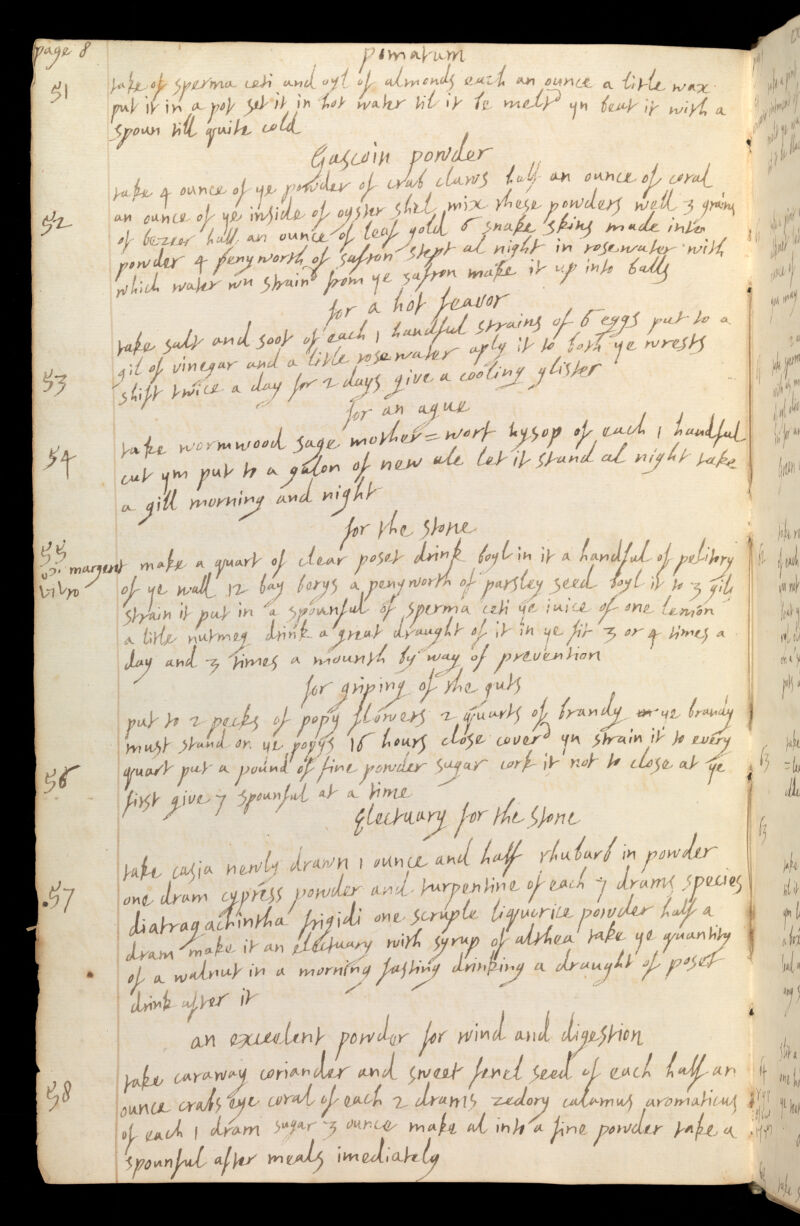 page 8
pomatum
51
take of sperma ceti and oyl of almonds each an ounce a litle wax
put it in a pot set it in hot water til it be meltd yn beat it with a
spoun till quite cold
Gascoin powder
take 4 ounce of ye powder of crab claws half an ounce of coral
an ounce of ye inside of oyster shel mix these powders well 3 grains
52
of bezeer half an ounce of leaf gold 6 snake skins made into
powder 4 penyworth of safron stept al night in rosewater with
which water wn straind from ye safron make it up into balls
for a hot feavor
take salt and soot of each 1 handful strains of 6 eggs put to a
gil of vinegar and a litle rosewater aply it to both ye wrests
53
shift twice a day for 2 days give a cooling glister
for an ague
take wormwood sage mother=wort hysop of each 1 handful
54
cut ym put to a galon of new ale let it stand al night take
a gill morning and night
for the stone
55
margeret
make a quart of clear poset drink boyl in it a handful of pelitory
of ye wall 12 bay borys a penyworth of parsley seed boyl it to 3 gils
strain it put in a spounful of sperma ceti ye iuice of one lemon
a litle nutmeg drink a great draught of it in ye fit 3 or 4 times a
day and 3 times a mounth by way of prevention
for griping of the guts
put to 2 pecks of popy flowers 2 quarts of brandy ye brandy
must stand on ye popys 16 hours close coverd yn strain it to every
56
quart put a pound of fine powder sugar cork it not to close at ye
first give 7 spounful at a time
Electuary for the stone
take casia newly drawn 1 ounce and half rhubarb in powder
57
one dram cypress powder and turpentine of each 7 drams species
diatragachintha frigidi one scruple liquerice powder half a
dram make it an electuary with syrup of althea take ye quantity
of a walnut in a morning fasting drinking a draught of poset
drink after it
an excelent powder for wind and digestion
58
take caraway coriander and sweet fenel seed of each half an
ounce crabs eye coral of each 2 drams zedory calamus aromaticus
of each 1 dram sugar 3 ounce make al into a fine powder take a
spounful after meals imediately